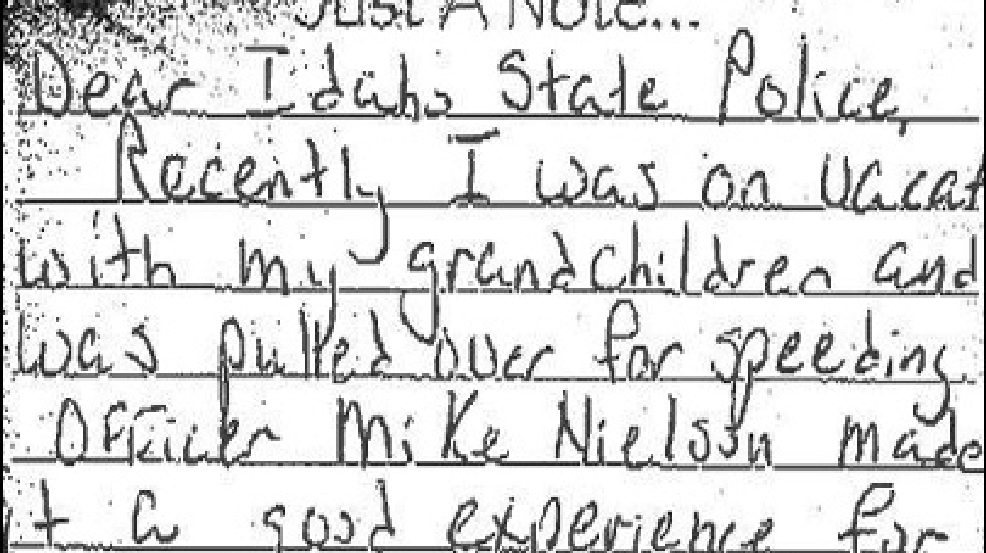 Just A Note...
Dear Idaho State Police,
Recently I was on vacat
with my grandchildren and
was pulled over for speeding.
Officer Mike Nielson made
it a good experience for